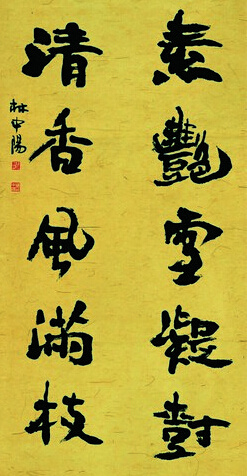 素艷雪凝對
清香風滿枝
林中陽